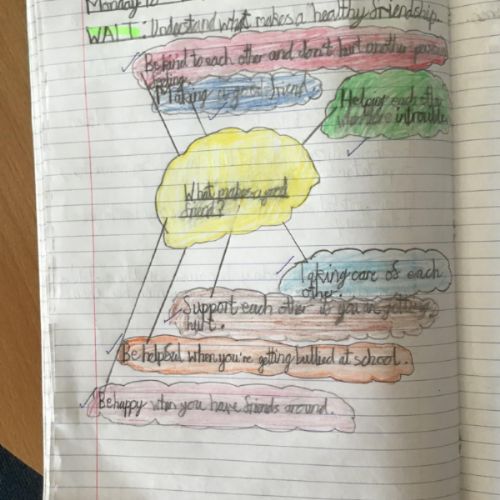 Monday
WALT: Understand what makes a healthy friendship.
Be kind to each other and don't hurt another persons
feeling.
Making a good friend.
Helping each other
when in trouble
What makes a good
friend?
Taking care of each
other.
Support each other if you are getting
hurt.
Be helpful when you're getting bullied at school.
Be happy when you have friends around.